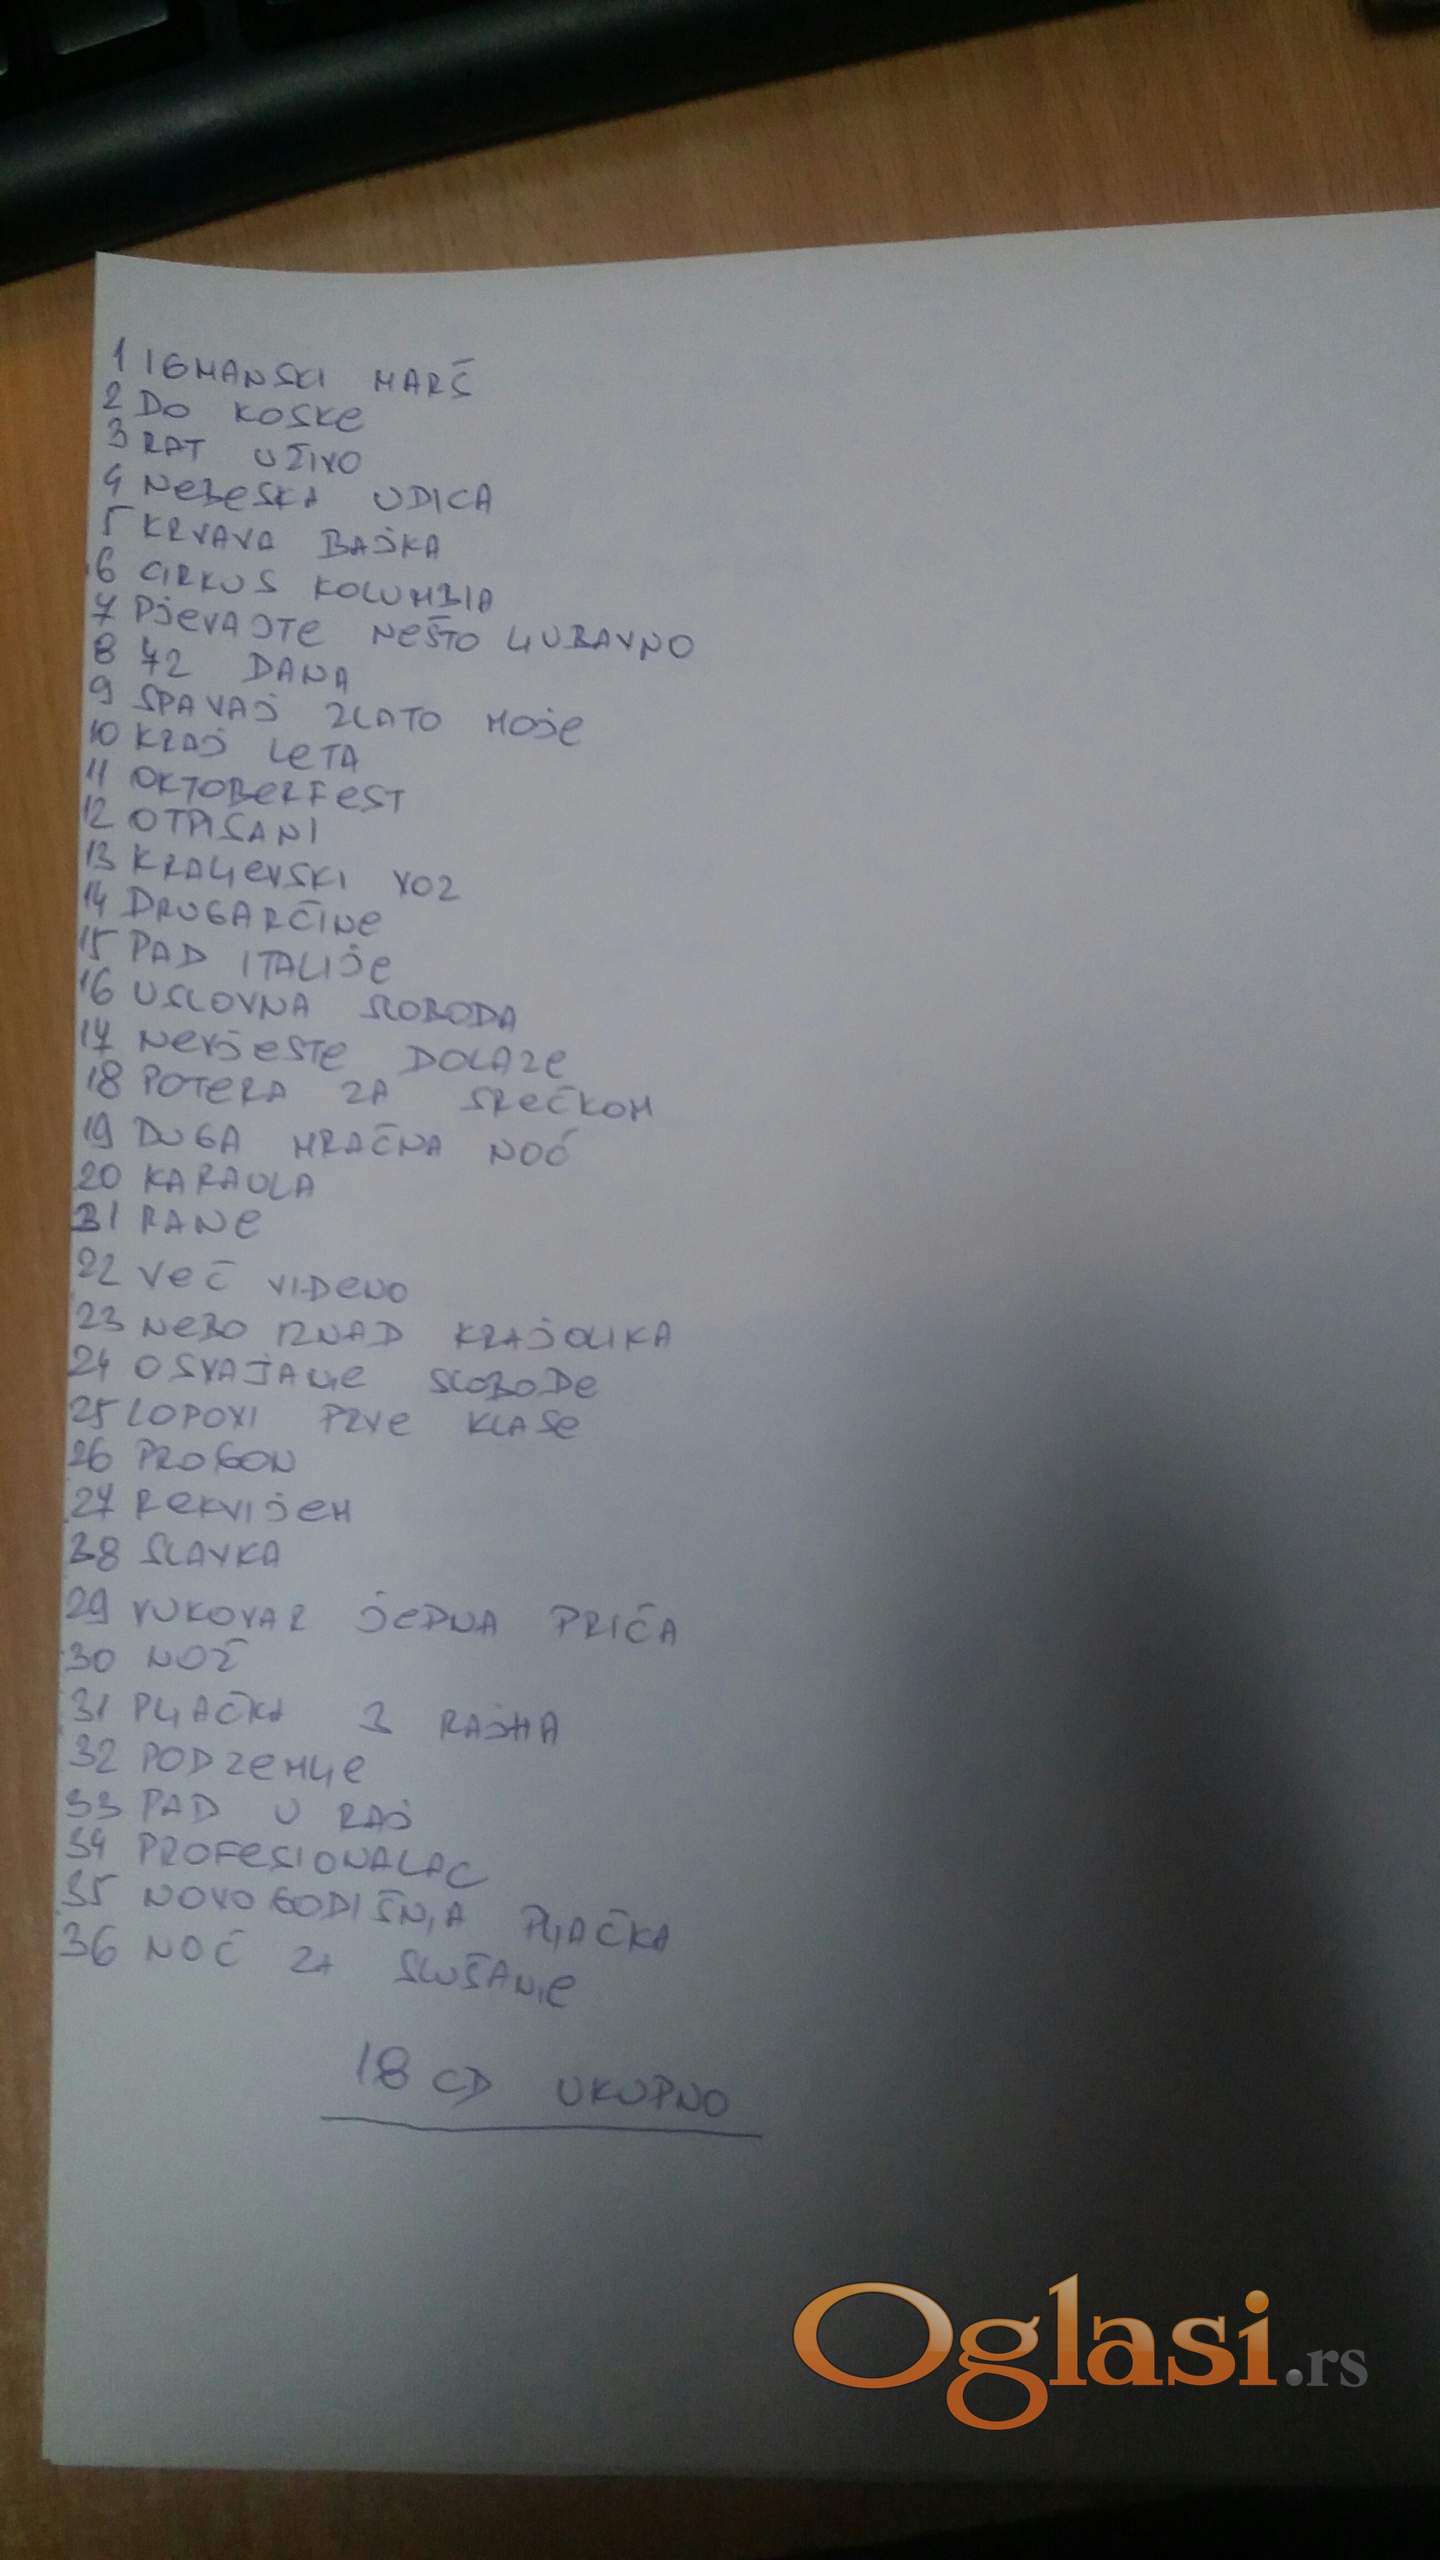 1 IGMANSKI MARŠ
2 DO KOSKE
3 RAT UŽIVO
4 NEBESKA UDICA
5 KRVAVA BAJKA
6 CIRKUS KOLUMBIA
7 PJEVAJTE NEŠTO LJUBAVNO
8 72 DANA
9 SPAVAJ ZLATO MOJE
10 KRAJ LETA
11 OKTOBERFEST
12 OTPISANI
13 KRALJEVSKI VOZ
14 DRUGARČINE
15 PAD ITALIJE
16 USLOVNA SLOBODA
17 NEVJESTE DOLAZE
18 POTERA ZA SREĆKOM
19 DUGA MRAČNA NOĆ
20 KARAULA
21 RANE
22 VEĆ VIĐENO
23 NEBO IZNAD KRAJOLIKA
24 OSVAJANJE SLOBODE
25 LOPOVI PRVE KLASE
26 PROGON
27 REKVIJEM
28 SLAVKA
29 VUKOVAR JEDNA PRIČA
30 NOŽ
31 PLJAČKA 3 RAJHA
32 PODZEMLJE
33 PAD U RAJ
34 PROFESIONALAC
35 NOVOGODIŠNJA PLJAČKA
36 NOĆ ZA SLUŠANJE
18 CD UKUPNO
Oglasi.rs